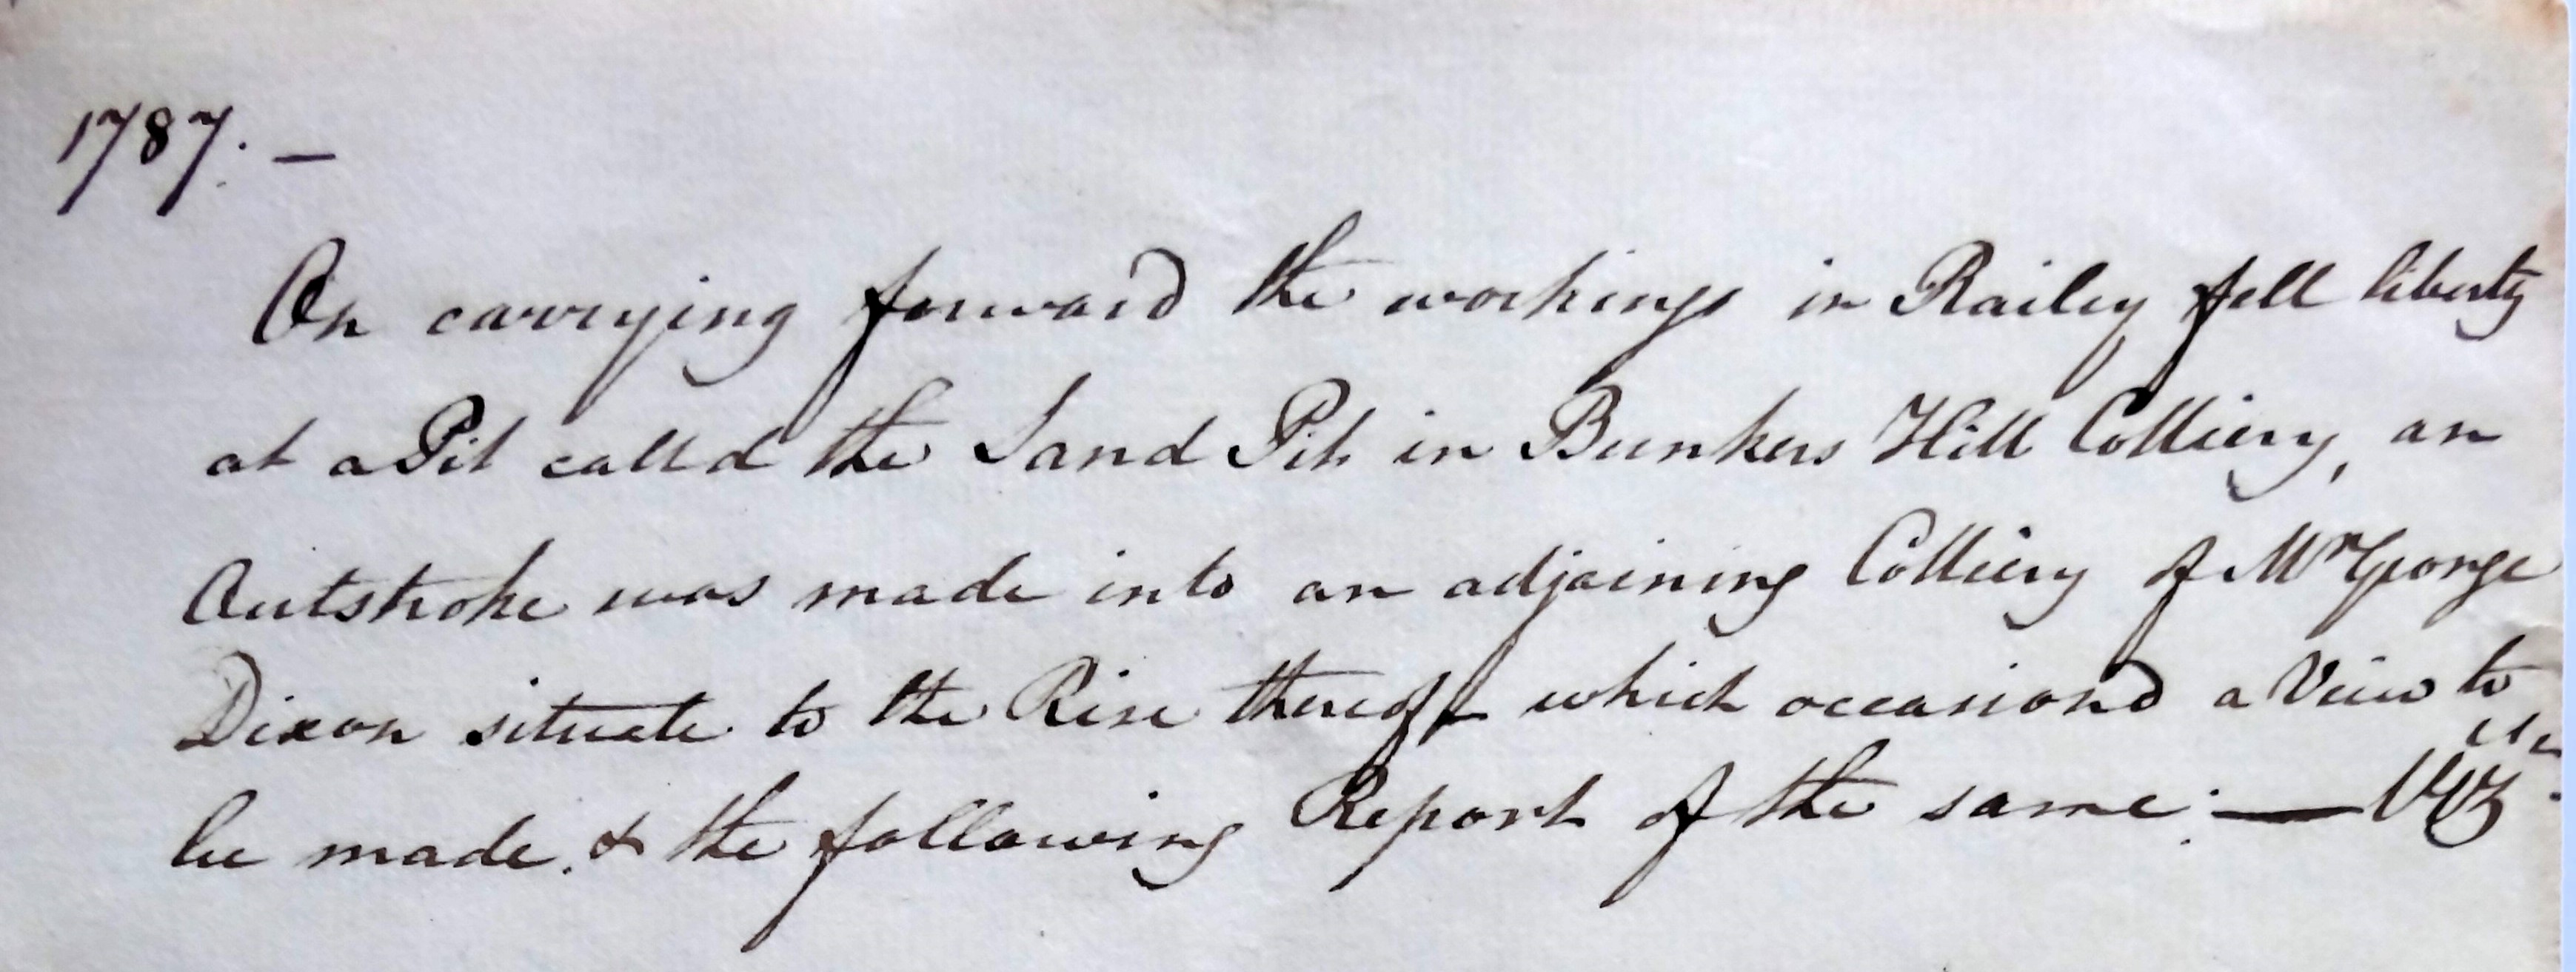 1787. —
On carrying forward the workings in Railey fell liberty
at a Pit calld the Sand Pit in Bunkers Hill Colliery, an
Outstroke was made into an adjoining Colliery of Mr George
Dixon situate to the Rise thereof which occasiond a View to
be made. & the following Report of the same: — Viz